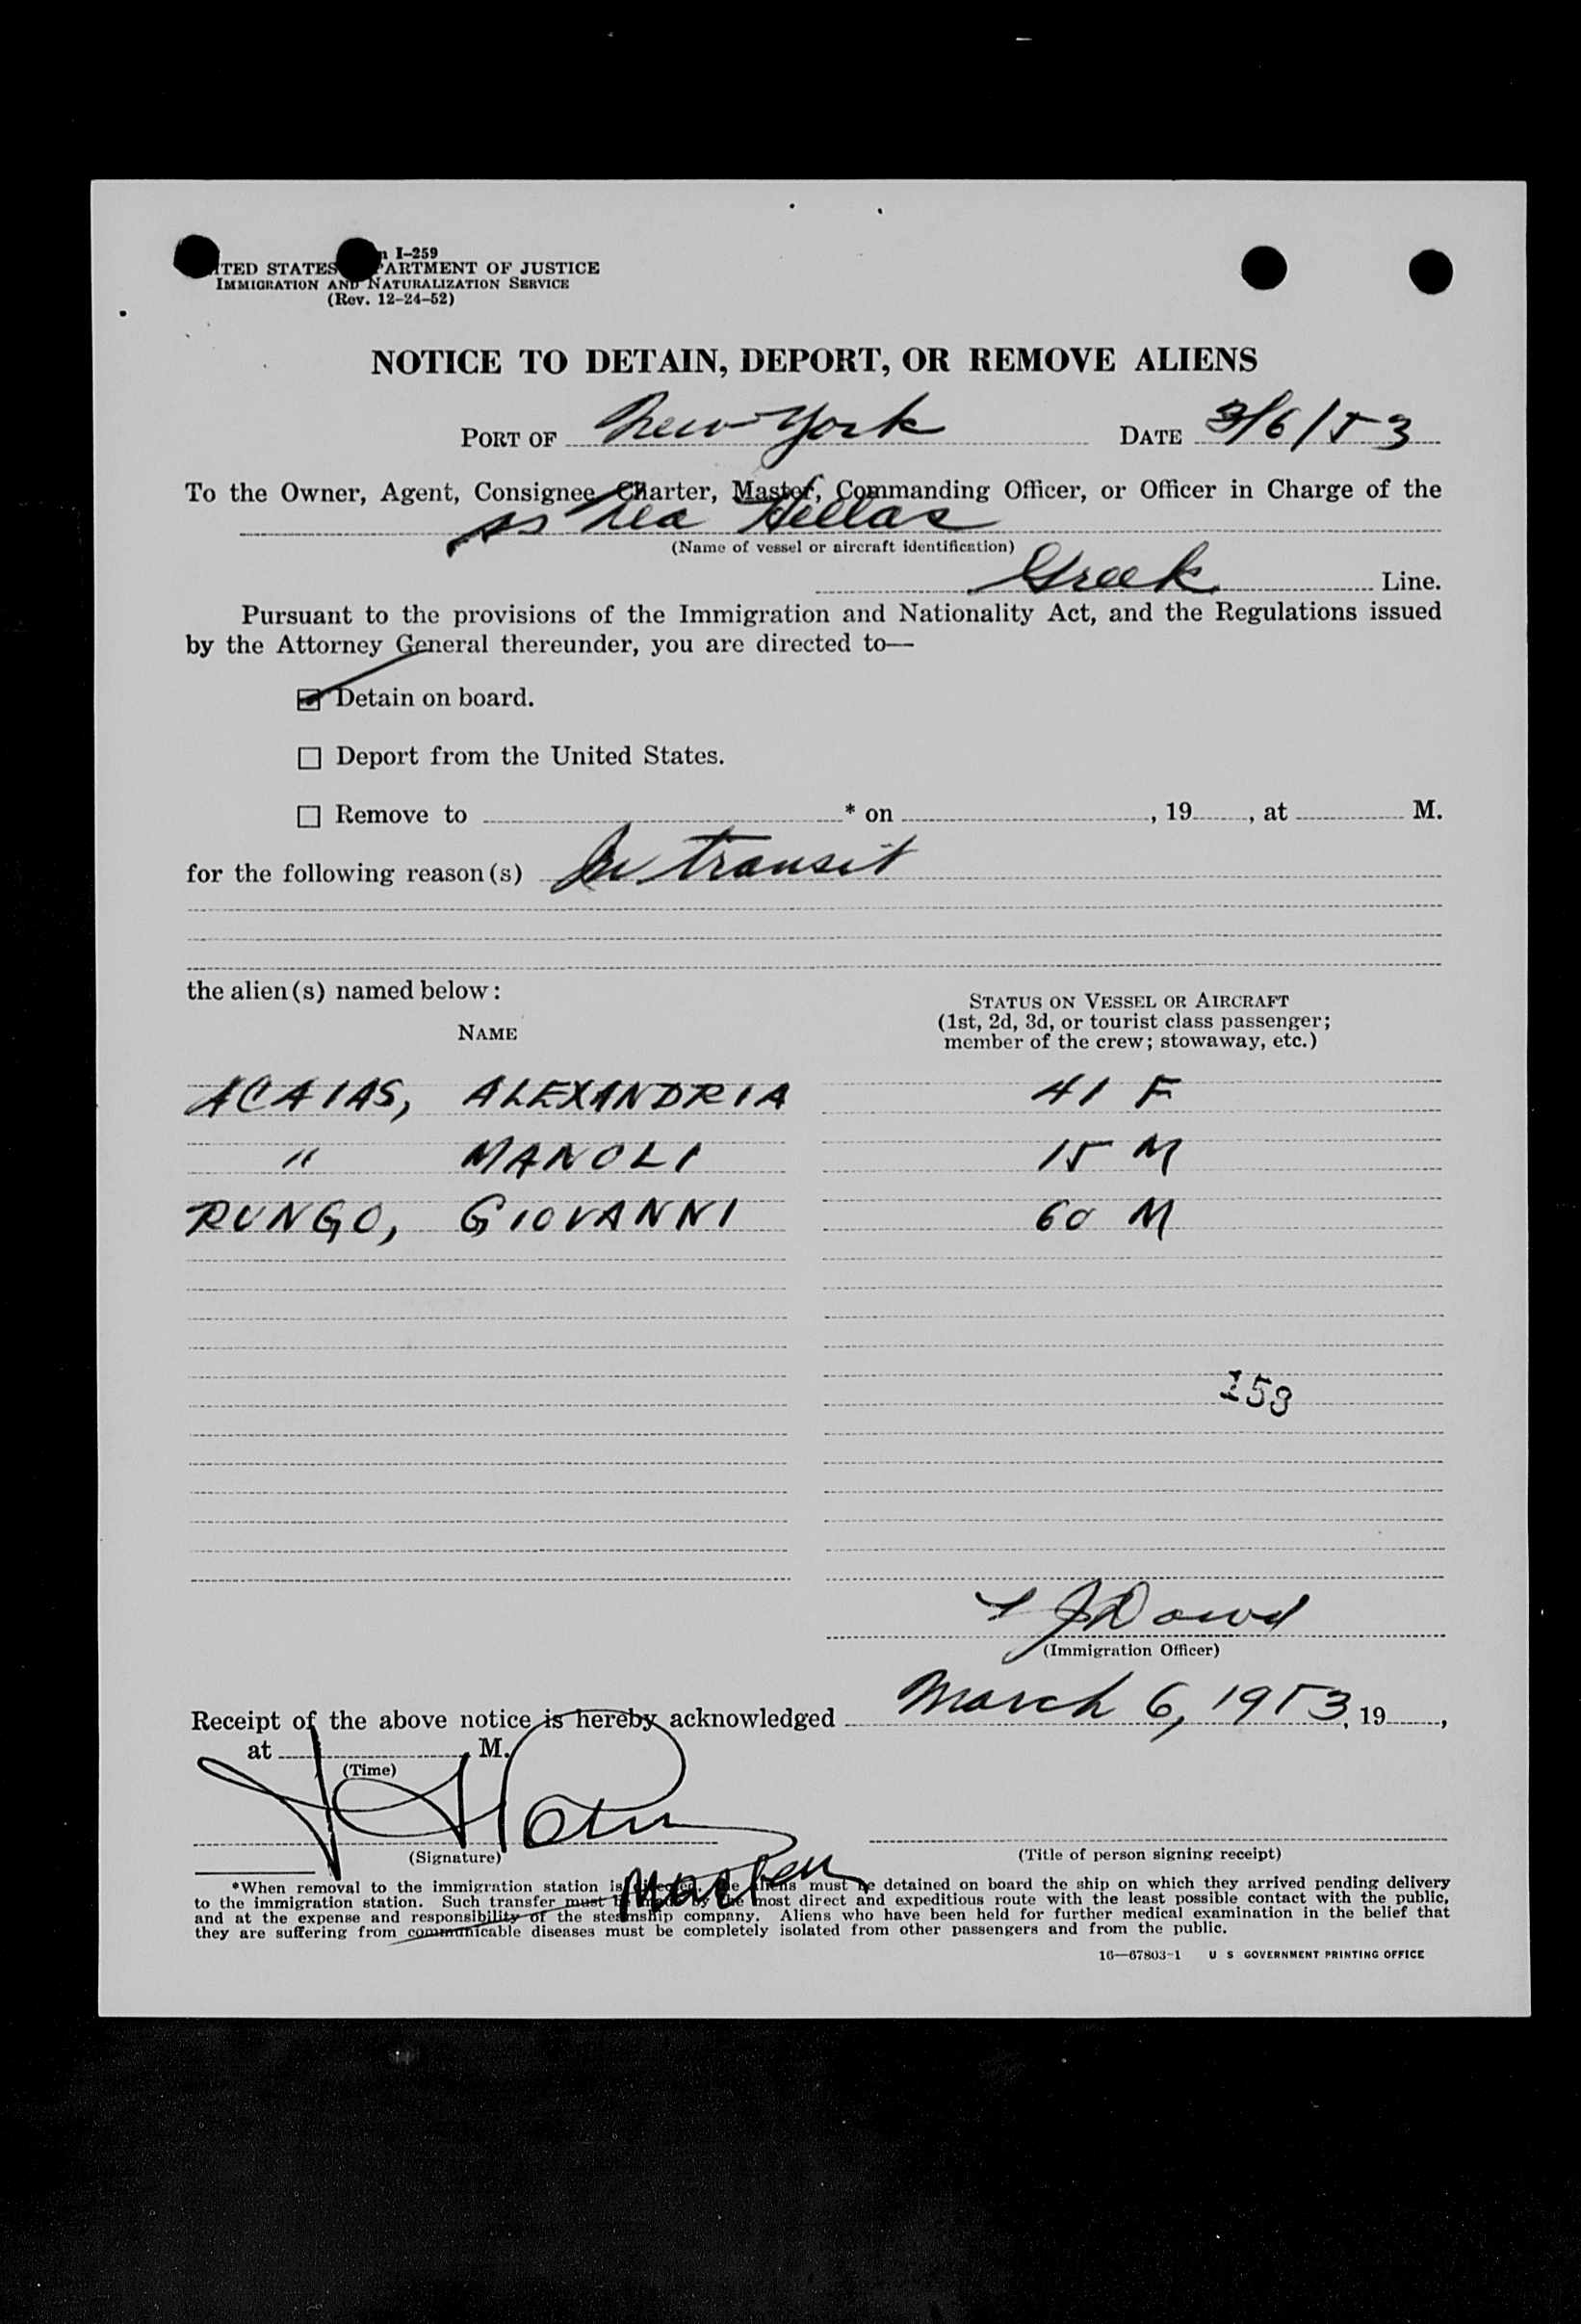 I-259
STATES DEPARTMENT OF JUSTICE
IMMIGRATION AND NATURALIZATION SERVICE
(Rev. 12-24-52)
NOTICE TO DETAIN, DEPORT, OR REMOVE ALIENS
PORT OF New York DATE 3/6/53
To the Owner, Agent, Consignee, Charter, Master, Commanding Officer, or Officer in Charge of the
ss Nea Hellas
(Name of vessel or aircraft identification)
Greek Line.
Pursuant to the provisions of the Immigration and Nationality Act, and the Regulations issued
by the Attorney General thereunder, you are directed to—
☑ Detain on board.
☐ Deport from the United States.
☐ Remove to * on , 19 , at M.
for the following reason(s) In transit
the alien(s) named below:
NAME
STATUS ON VESSEL OR AIRCRAFT
(1st, 2d, 3d, or tourist class passenger;
member of the crew; stowaway, etc.)
ACAIAS, ALEXANDRIA 41 F
" MANOLI 15 M
RUNGO, GIOVANNI 60 M
153
J Dowd
(Immigration Officer)
Receipt of the above notice is hereby acknowledged March 6, 1953, 19 ,
at M.
(Time)
(Signature)
(Title of person signing receipt)
Master
*When removal to the immigration station is directed, the aliens must be detained on board the ship on which they arrived pending delivery
to the immigration station. Such transfer must be made by the most direct and expeditious route with the least possible contact with the public,
and at the expense and responsibility of the steamship company. Aliens who have been held for further medical examination in the belief that
they are suffering from communicable diseases must be completely isolated from other passengers and from the public.
16—67803-1 U S GOVERNMENT PRINTING OFFICE